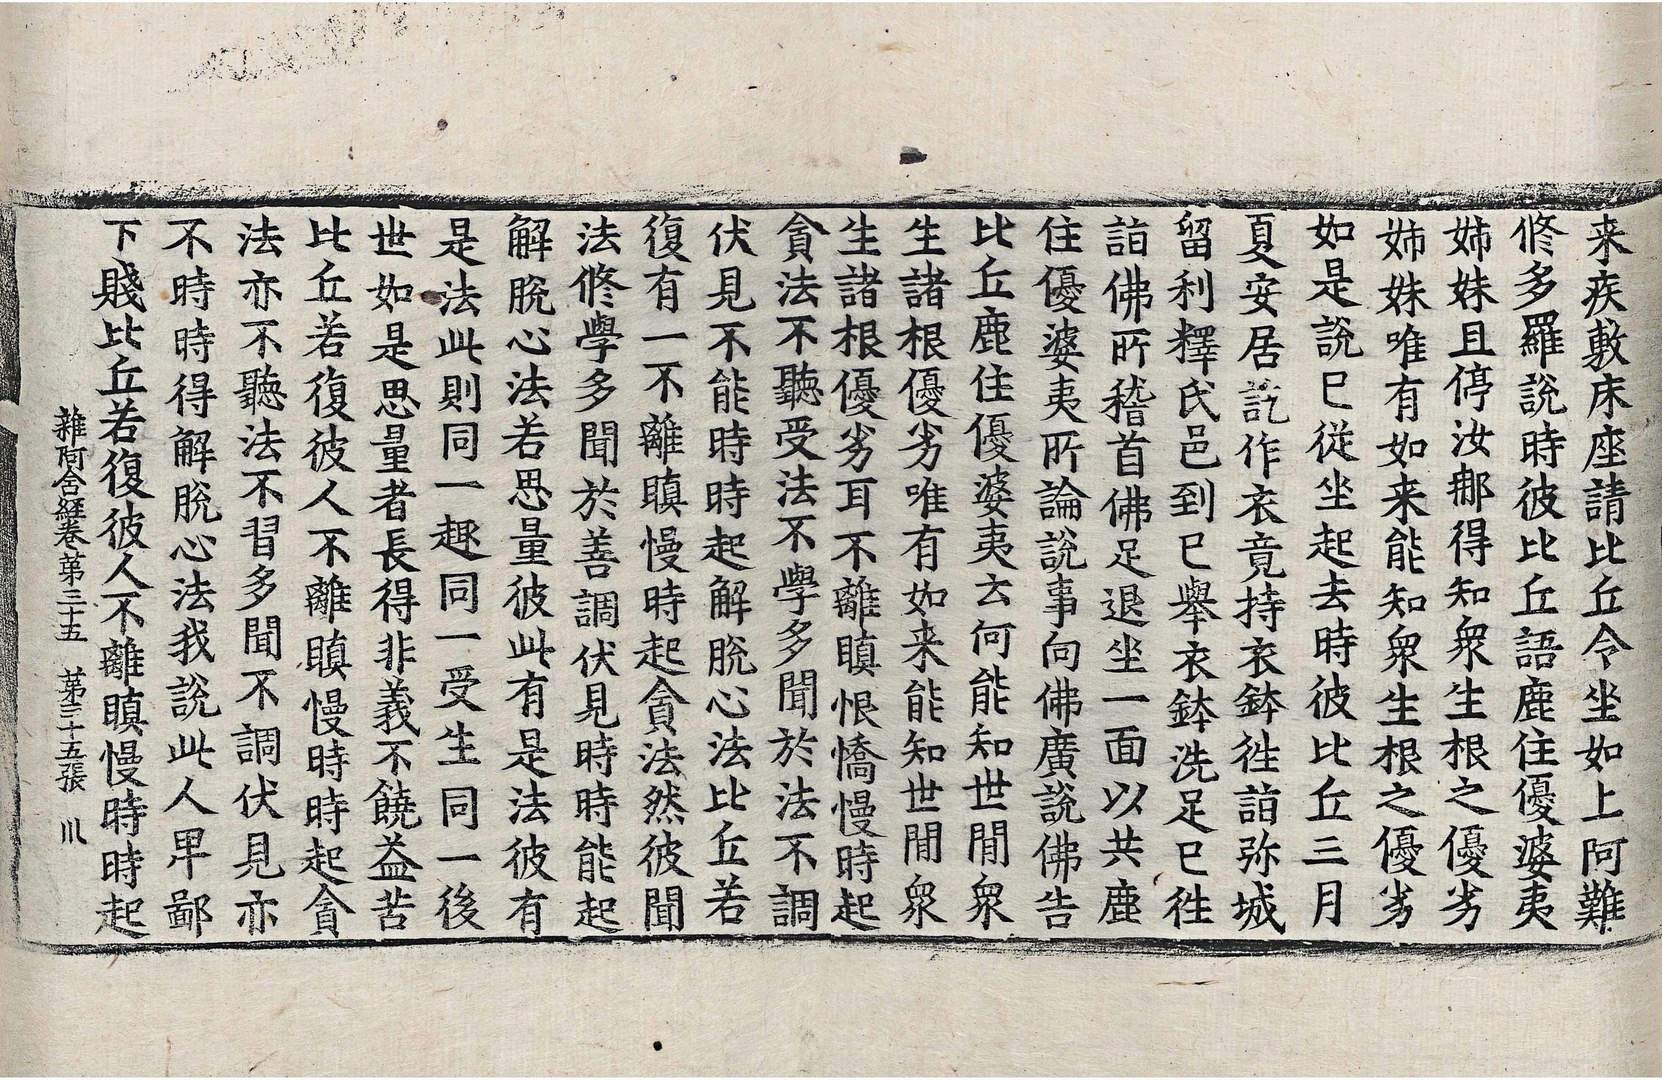 来疾敷床座請比丘令坐如上阿難
修多羅說時彼比丘語鹿住優婆夷
姊妹且停汝那得知衆生根之優劣
姊妹唯有如来能知衆生根之優劣
如是說已從坐起去時彼比丘三月
夏安居訖作衣竟持衣鉢徃詣弥城
留利釋氏邑到已舉衣鉢洗足已徃
詣佛所稽首佛足退坐一面以共鹿
住優婆夷所論說事向佛廣說佛告
比丘鹿住優婆夷云何能知世閒衆
生諸根優劣唯有如来能知世閒衆
生諸根優劣耳不離瞋恨憍慢時起
貪法不聽受法不學多聞於法不調
伏見不能時時起解脫心法比丘若
復有一不離瞋慢時起貪法然彼聞
法修學多聞於善調伏見時時能起
解脫心法若思量彼此有是法彼有
是法此則同一趣同一受生同一後
世如是思量者長得非義不饒益苦
比丘若復彼人不離瞋慢時時起貪
法亦不聽法不習多聞不調伏見亦
不時時得解脫心法我說此人卑鄙
下賤比丘若復彼人不離瞋慢時時起
雜阿含經卷第三十五 第三十五張 川